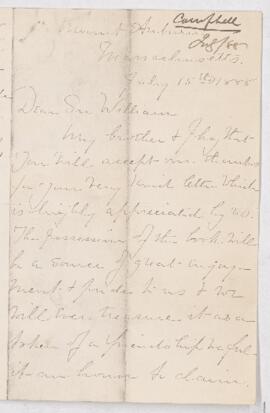 Campbell
Mount Auburn
July/88
Massachusetts.
July 15th 1888
Dear Sir William
My brother & I beg that
you will accept our thanks
for your very kind letter which
is highly appreciated by us.
The possession of the book will
be a source of great enjoy-
ment & pride to us & we
will ever treasure it as a
token of a friendship we feel
it an honour to claim.